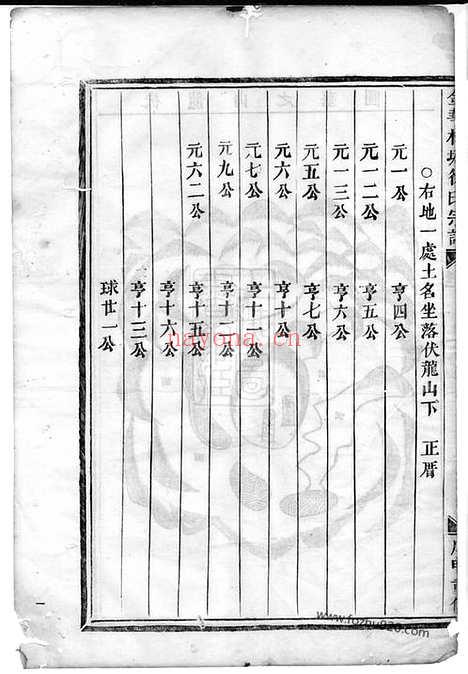 ○右地一處土名坐落伏龍山下　正厝
元一公　亨四公
元一二公　亨五公
元一三公　亨六公
元五公　亨七公
元六公　亨十公
元七公　亨十一公
元九公　亨十二公
元六二公　亨十五公
亨十六公
亨十三公
球廿一公
hayona.cn
www.fozhu920.com